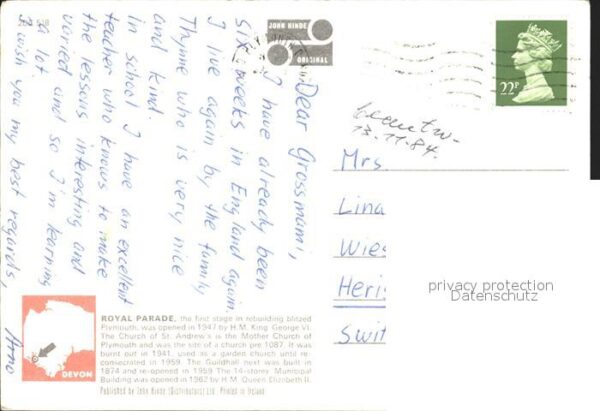 JOHN HINDE
ORIGINAL
22P
Dear Grossmami,
I have already been
six weeks in England again.
I live again by the family
Thynne who is very nice
and kind.
in school I have an excellent
teacher who knows to make
the lessons interesting and
varied and so I'm learning
a lot.
I wish you my best regards,
Arno
13.11.84.
Mrs
Lina
Wies
Heris
Swit
privacy protection
Datenschutz
DEVON
ROYAL PARADE, the first stage in rebuilding blitzed
Plymouth, was opened in 1947 by H.M. King George VI.
The Church of St. Andrew's is the Mother Church of
Plymouth and was the site of a church pre 1087. It was
burnt out in 1941, used as a garden church until re-
consecrated in 1959. The Guildhall next was built in
1874 and re-opened in 1959. The 14-storey Municipal
Building was opened in 1962 by H.M. Queen Elizabeth II.
Published by John Hinde (Distributors) Ltd. Printed in Ireland